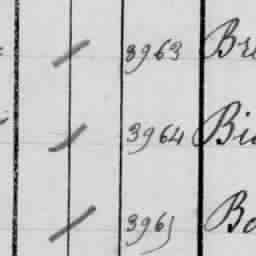 3963 Br
3964 Bi
3965 Bo